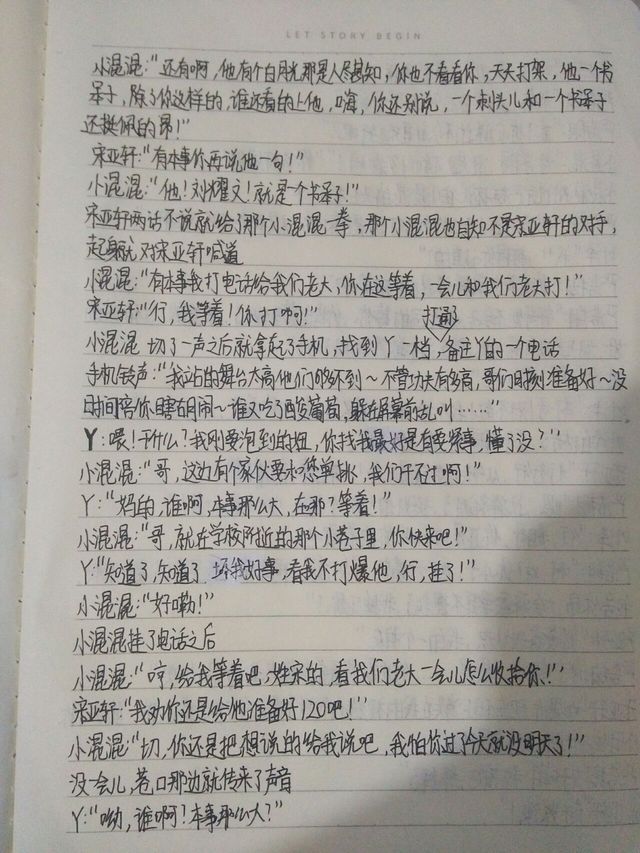 LET STORY BEGIN
小混混:“还有啊,他有个白月光那是人尽皆知,你也不看看你,天天打架,他一个书
呆子,除了你这样的,谁还看的上他,嗨,你还别说,一个刺头儿和一个书呆子
还挺佩的昂!”
宋亚轩:“有本事你再说他一句!”
小混混:“他!刘耀文!就是个书呆子!”
宋亚轩两话不说就给了那个小混混一拳,那个小混混也自知不是宋亚轩的对手,
起身就对宋亚轩喊道
小混混:“有本事我打电话给我们老大,你在这等着,一会儿和我们老大打!”
宋亚轩:“行,我等着!你打啊!”
打通了
小混混 切了一声之后就拿起了手机,找到 丫一档,备注丫的一个电话
手机铃声:“我站的舞台太高他们够不到~不管功夫有多高,哥们时刻准备好~没
时间陪你瞎胡闹~谁又吃了酸葡萄,躲在屏幕前乱叫……”
丫:喂!干什么?我刚要泡到的妞,你找我最好是有要紧事,懂了没?”
小混混:“哥,这边有个家伙要和您单挑,我们干不过啊!”
丫:“妈的,谁啊,本事那么大,在那?等着!”
小混混:“哥,就在学校附近的那个小巷子里,你快来吧!”
丫:“知道了,知道了 坏我好事,看我不打爆他,行,挂了!”
小混混:“好嘞!”
小混混挂了电话之后
小混混:“哼,给我等着吧,姓宋的,看我们老大一会儿怎么收拾你!”
宋亚轩:“我劝你还是给他准备好120吧!”
小混混:“切,你还是把想说的给我说吧,我怕你过了今天就没明天了!”
没一会儿,巷口那边就传来了声音
丫:“呦,谁啊?本事那么大?”